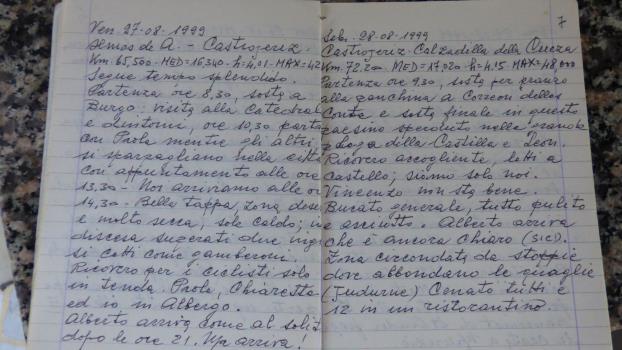 Ven. 27-08-1999
Olmos de A. - Castrogeriz
Km. 65,500 - MED = 16,340 - h = 4,01 - MAX = 42
Segue tempo splendido.
Partenza ore 8,30, sosta a
Burgo: visita alla Catedral
e dintorni, ore 10,30 parto
con Paola mentre gli altri
si sparpagliano nella città
con appuntamento alle ore
13,30 - Noi arriviamo alle ore
14,30 - Bella tappa, zona
e molto secca, sole caldo; in
discesa superati due
si cotti come gamberoni.
Ricovero per i ciclisti solo
in tenda. Paola, Chiaretta
ed io in Albergo.
Alberto arriva come al solit
dopo le ore 21. Ma arriva!
7
Sab. 28-08-1999
Castrogeriz - Calzadilla della Queza
Km. 72,200 MED = 17,020 h = 4,15 MAX = 48,000
Partenza ore 9,30, sosta per pranzo
alla panchina a Correon de los
Conta e sosta finale in questo
paesino sperduto nella
della Castilla e Leon.
Ricovero accogliente, letti a
Castello; siamo solo noi.
Vincenzo non sta bene.
Bucato generale, tutto pulito
e asciutto. Alberto arriva
che è ancora Chiaro (SIC).
Zona circondata da stoppie
dove abbondano le quaglie
(Judurne) Cenato tutti e
12 in un ristorantino.